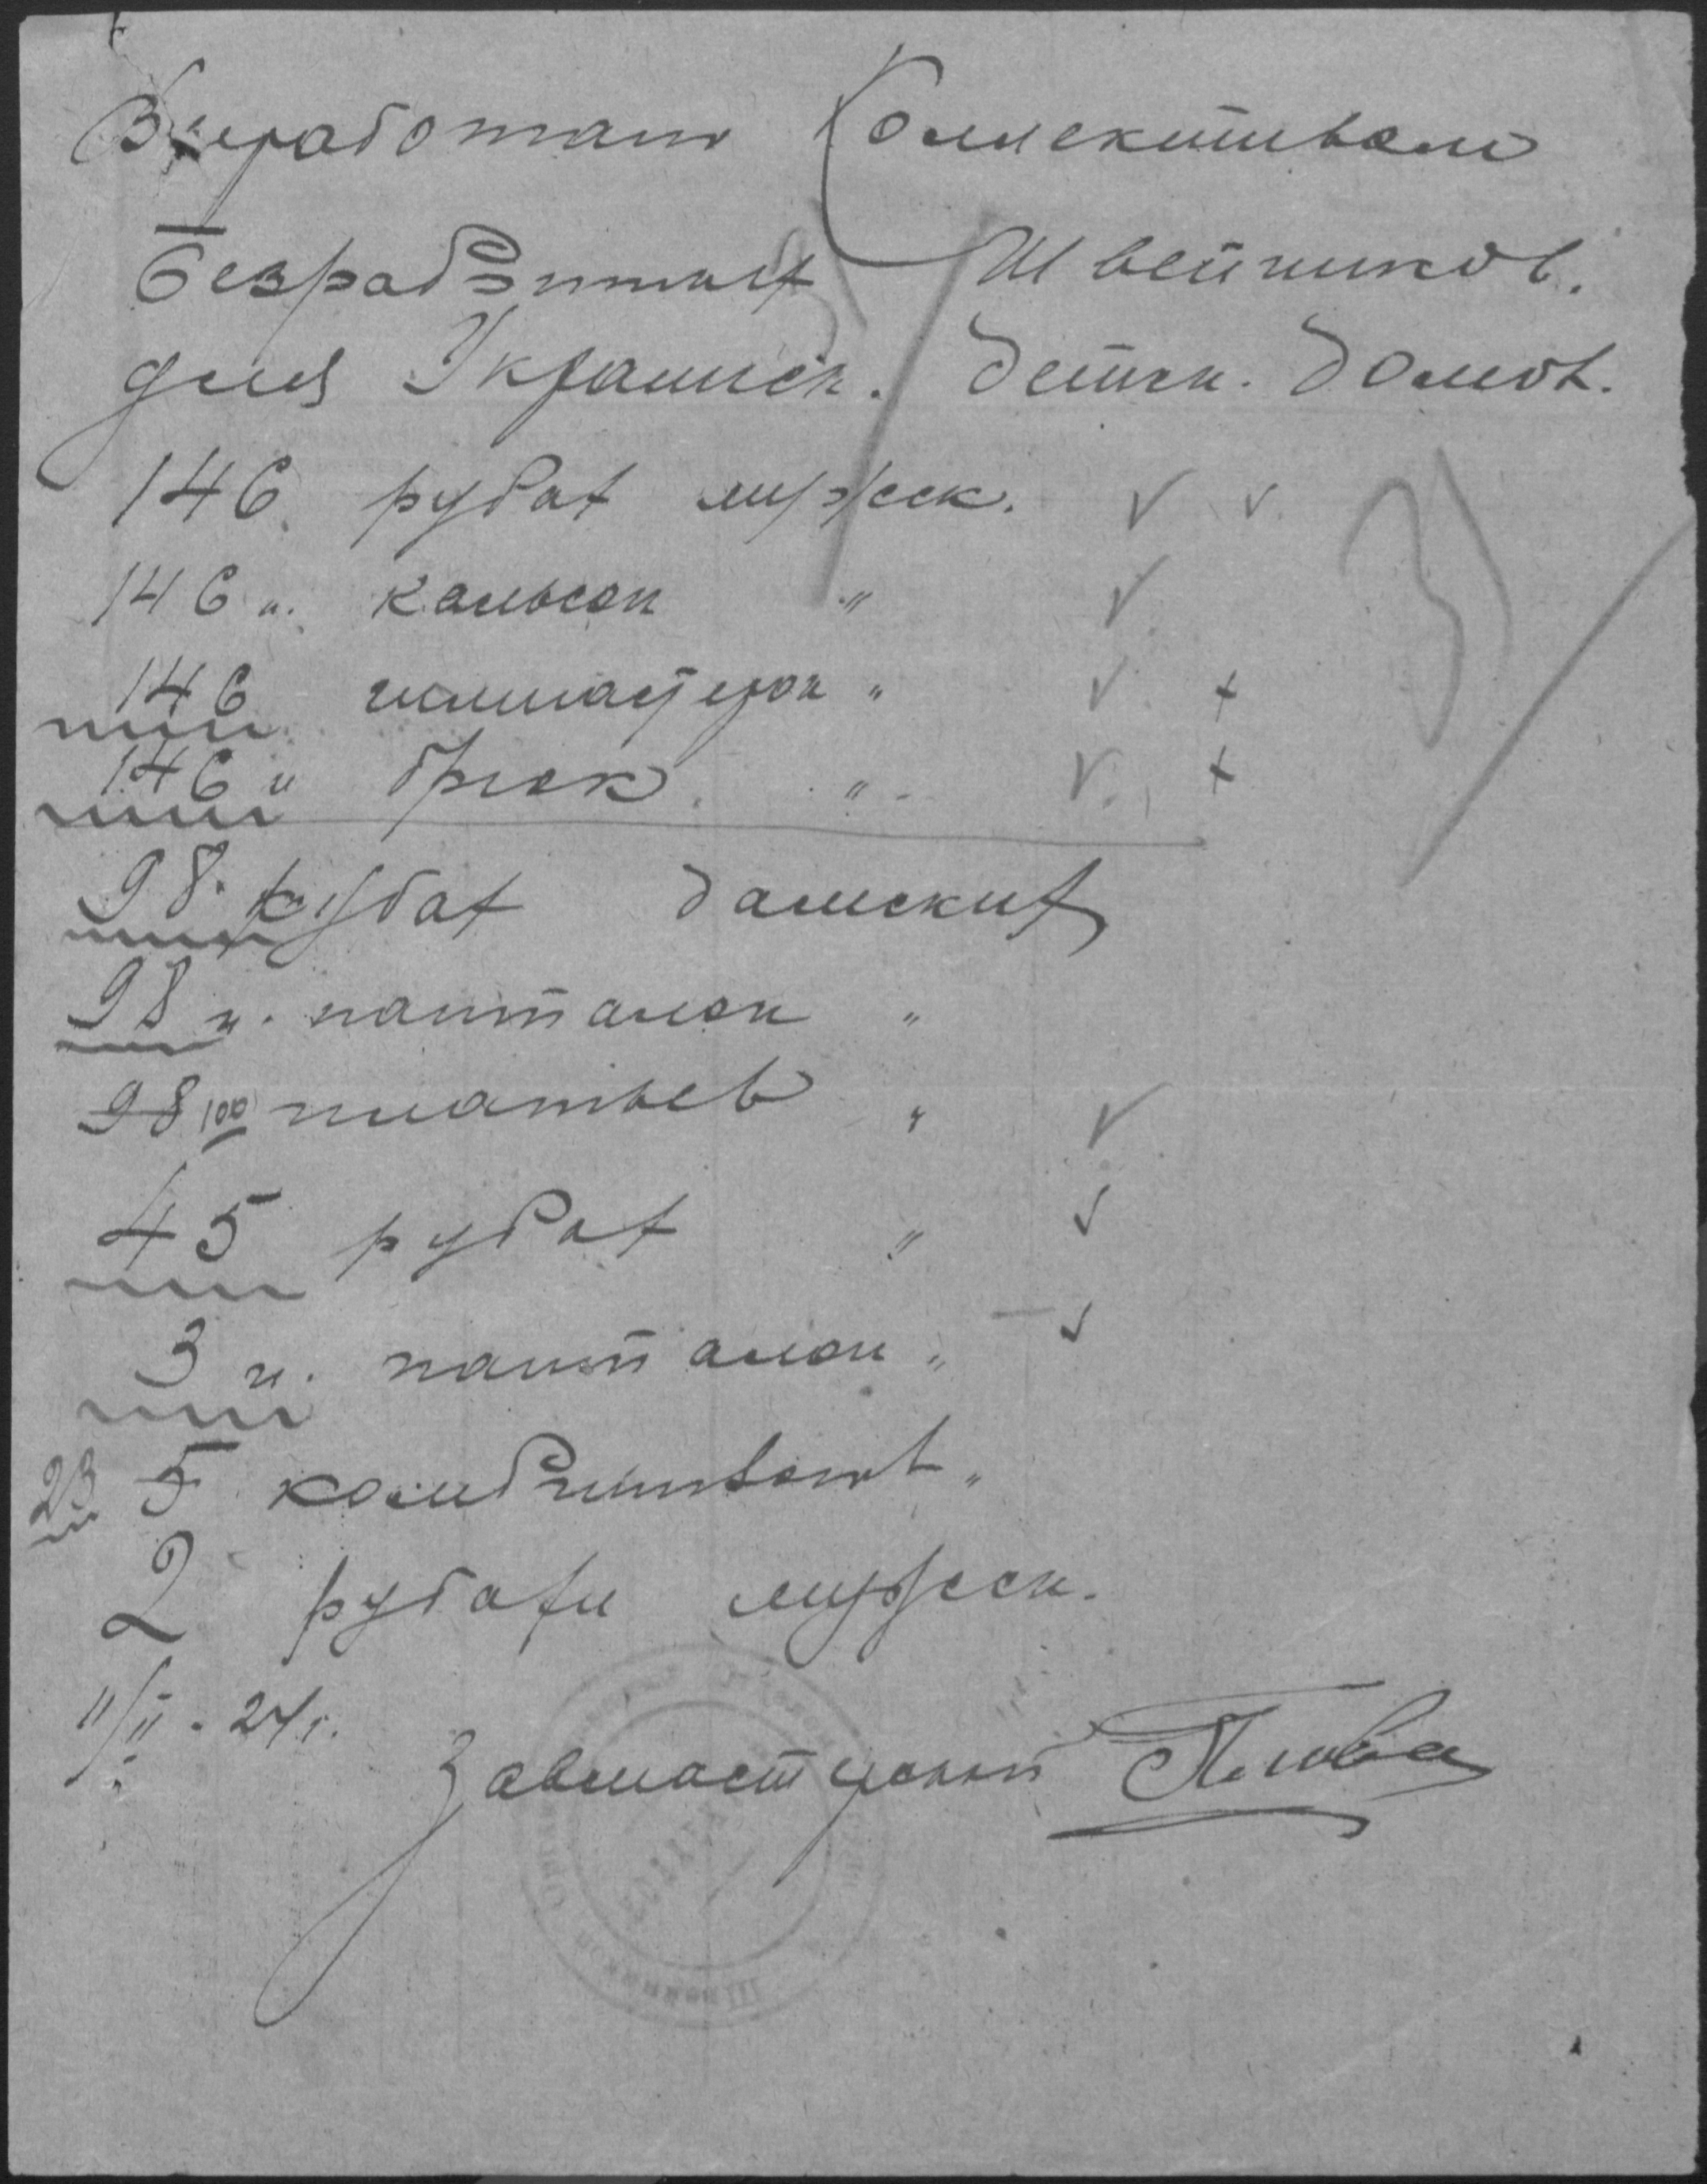 Выработано Коллективом
безработных Швейников.
для Украинск. детск. домов.
146 рубах мужск. 3/
146 п. кальсон "
146 гимнастерок "
146 п брюк "
98 рубах дамских
98 п. панталон "
98 100 платьев "
45 рубах "
3 п. панталон "
23 5 комбинзонов "
2 рубахи мужск.
11/II - 24 г.
Завмастерской